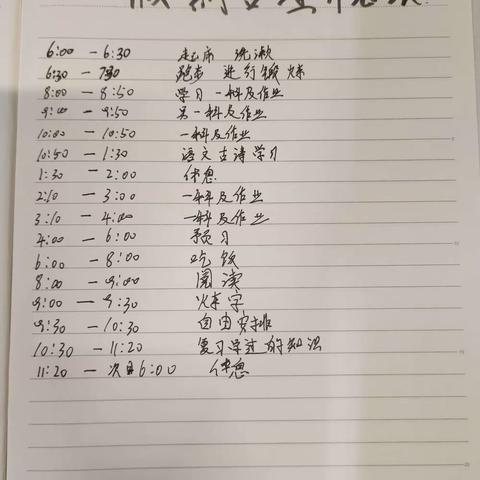 6:00 — 6:30 起床 洗漱
6:30 — 7:30 跑步 进行锻炼
8:00 — 8:50 学习一科及作业
9:00 — 9:50 另一科及作业
10:00 — 10:50 一科及作业
10:50 — 1:30 语文古诗学习
1:30 — 2:00 休息
2:10 — 3:00 一科及作业
3:10 — 4:00 一科及作业
4:00 — 6:00 预习
6:00 — 8:00 吃饭
8:00 — 9:00 阅读
9:00 — 9:30 练字
9:30 — 10:30 自由安排
10:30 — 11:20 复习学过的知识
11:20 — 次日6:00 休息